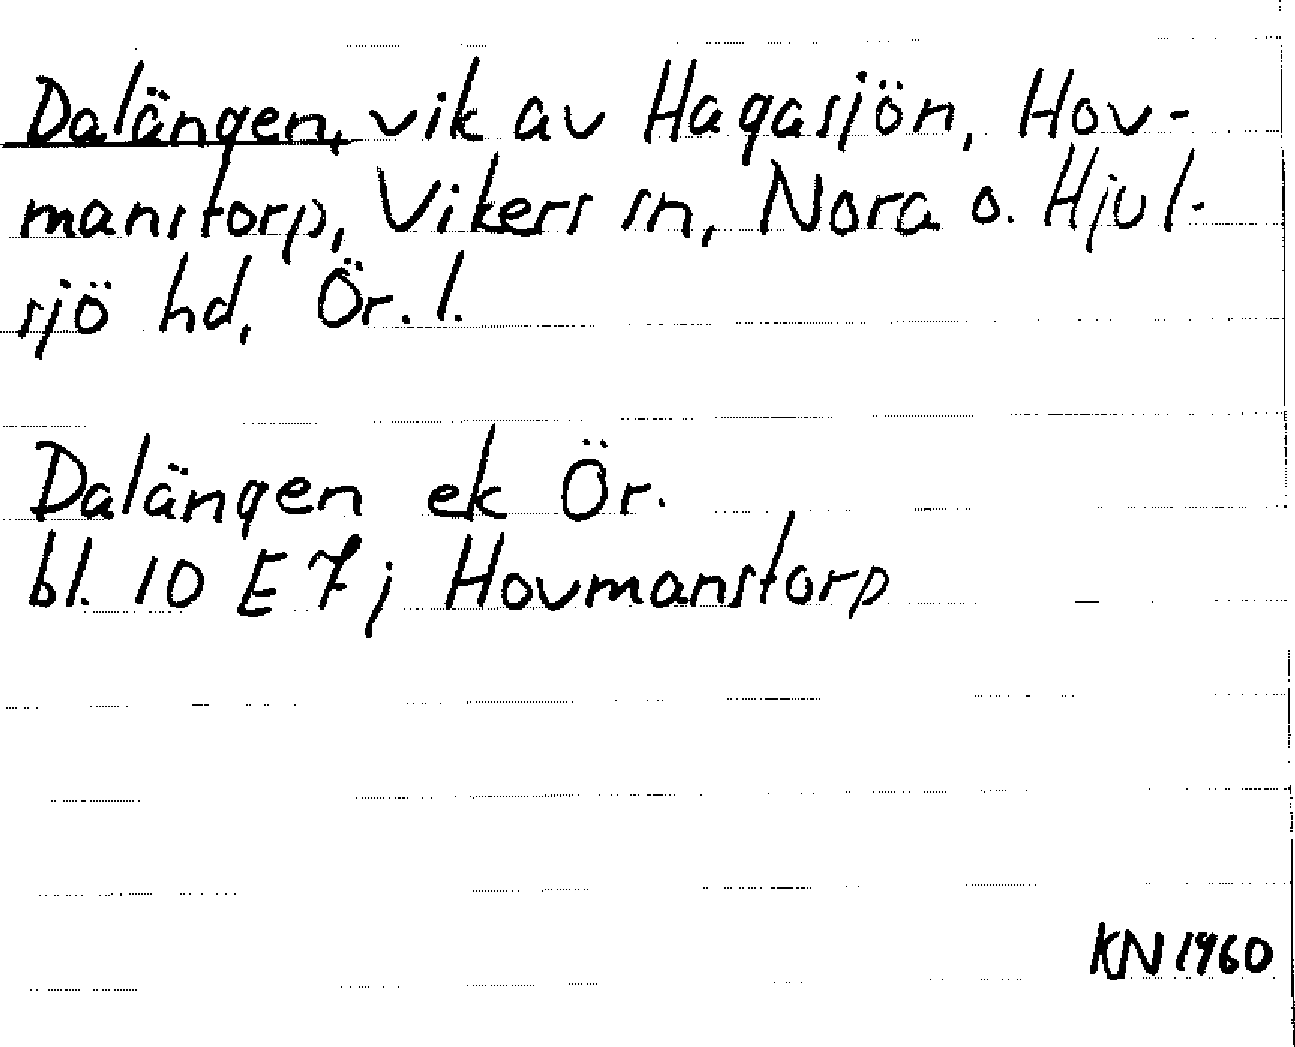 Dalängen, vik av Hagasjön, Hov-
manstorp, Vikers sn, Nora o. Hjul-
sjö hd, Ör. l.
Dalängen ek Ör.
bl. 10 E 7 j Hovmanstorp
KN 1960